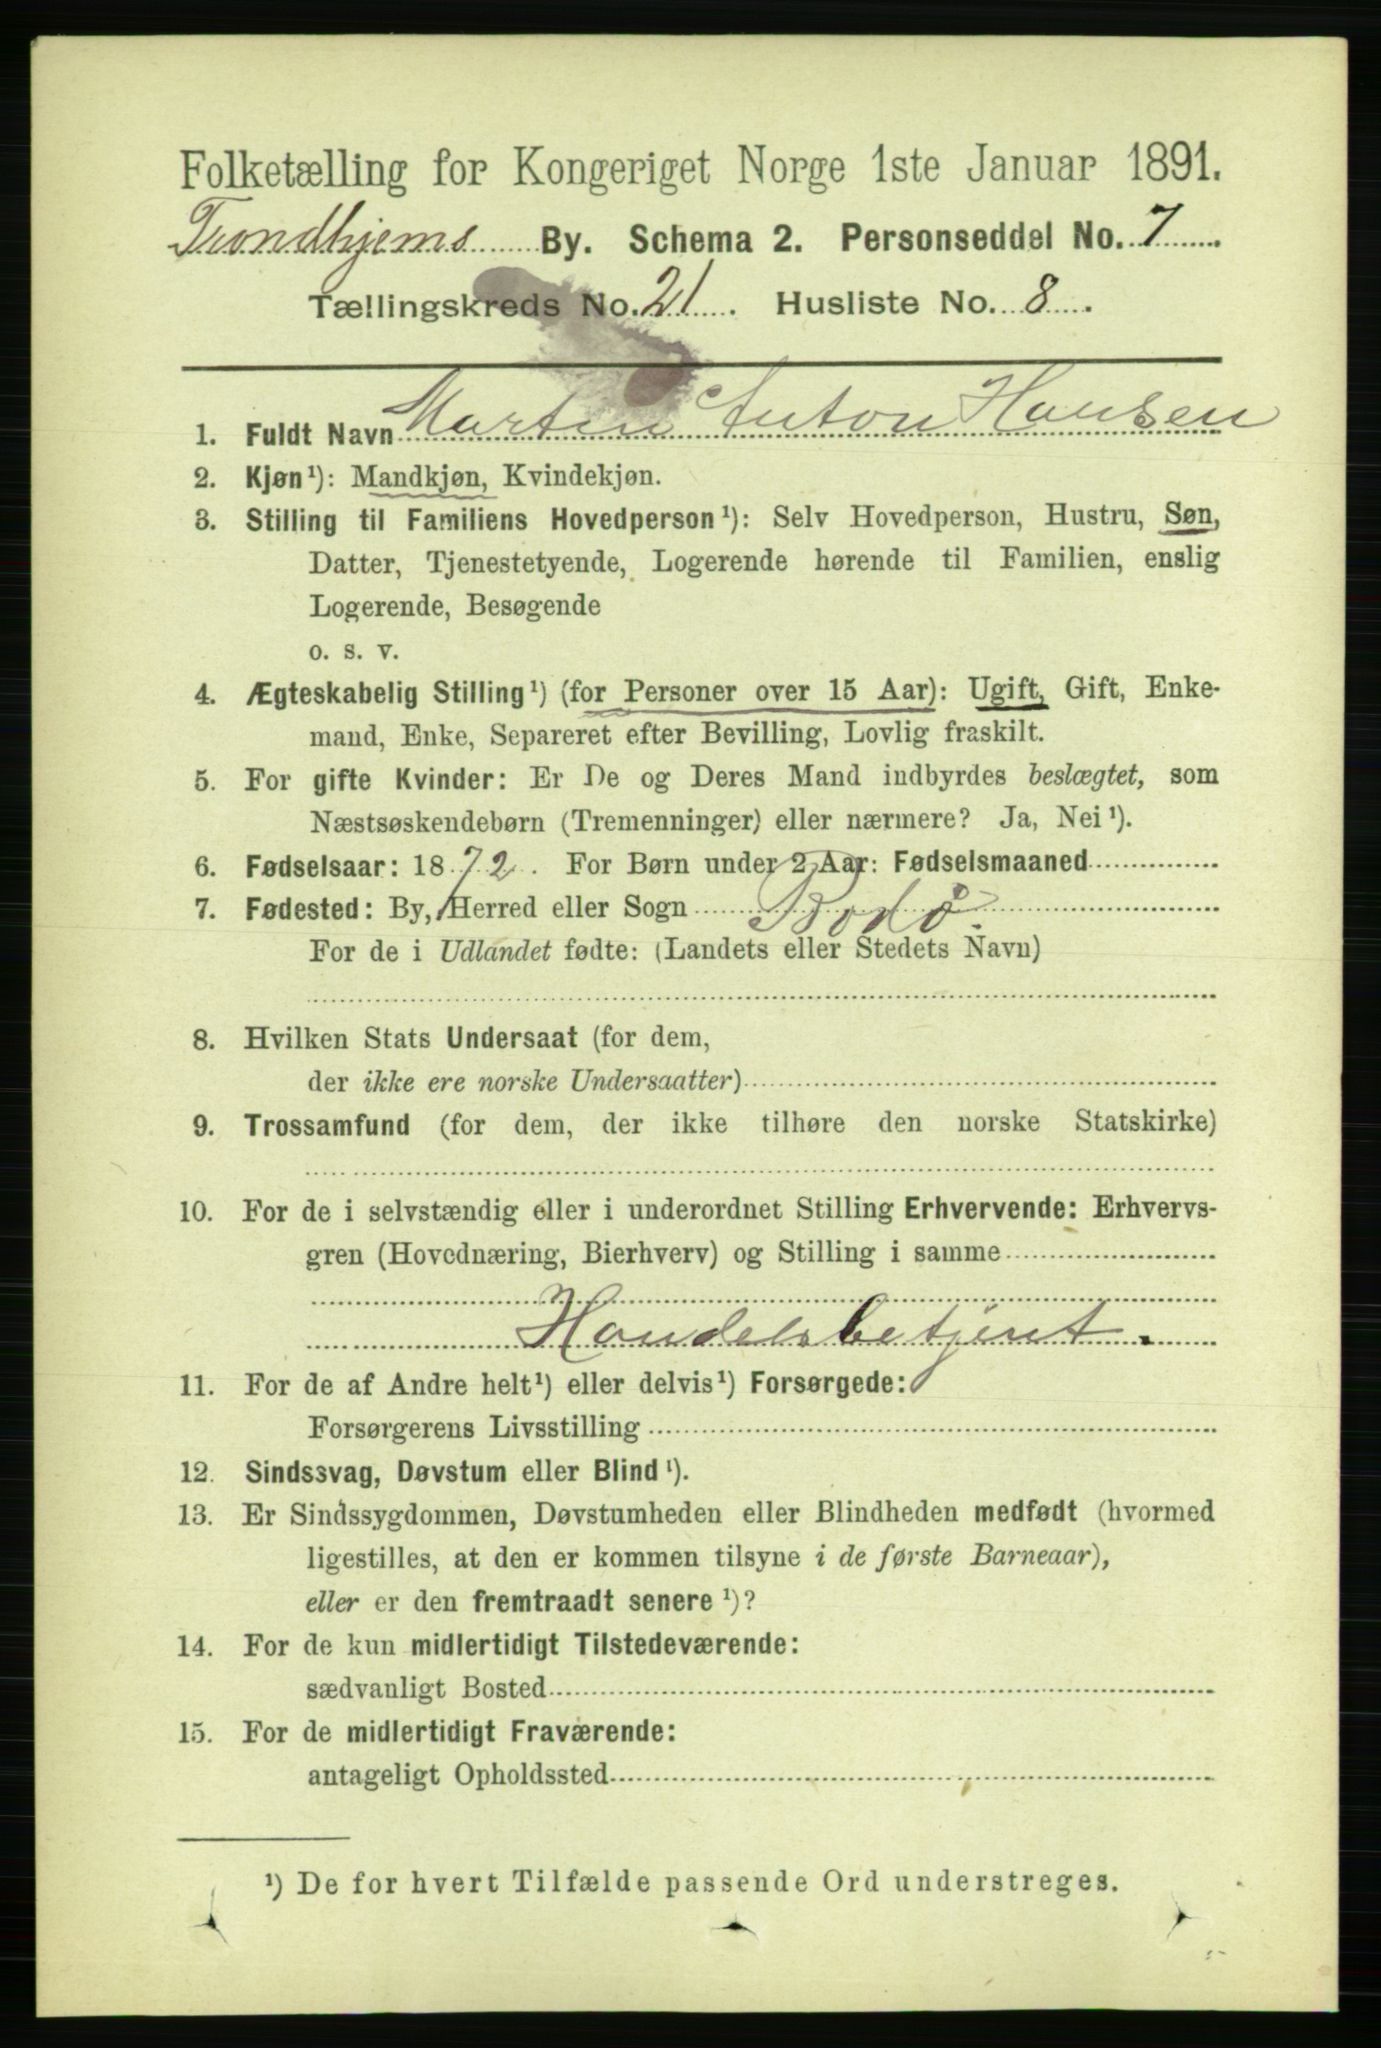 Folketælling for Kongeriget Norge 1ste Januar 1891.
Trondhjems By. Schema 2. Personseddel No. 7
Tællingskreds No. 21. Husliste No. 8.
1. Fuldt Navn Martin Anton Hansen
2. Kjøn¹): Mandkjøn, Kvindekjøn.
3. Stilling til Familiens Hovedperson¹): Selv Hovedperson, Hustru, Søn,
Datter, Tjenestetyende, Logerende hørende til Familien, enslig
Logerende, Besøgende
o. s. v.
4. Ægteskabelig Stilling¹) (for Personer over 15 Aar): Ugift, Gift, Enke-
mand, Enke, Separeret efter Bevilling, Lovlig fraskilt.
5. For gifte Kvinder: Er De og Deres Mand indbyrdes beslægtet, som
Næstsøskendebørn (Tremenninger) eller nærmere? Ja, Nei¹).
6. Fødselsaar: 1872. For Børn under 2 Aar: Fødselsmaaned
7. Fødested: By, Herred eller Sogn Bodø.
For de i Udlandet fødte: (Landets eller Stedets Navn)
8. Hvilken Stats Undersaat (for dem,
der ikke ere norske Undersaatter)
9. Trossamfund (for dem, der ikke tilhøre den norske Statskirke)
10. For de i selvstændig eller i underordnet Stilling Erhvervende: Erhvervs-
gren (Hovednæring, Bierhverv) og Stilling i samme
Handelsbetjent.
11. For de af Andre helt¹) eller delvis¹) Forsørgede:
Forsørgerens Livsstilling
12. Sindssvag, Døvstum eller Blind¹).
13. Er Sindssygdommen, Døvstumheden eller Blindheden medfødt (hvormed
ligestilles, at den er kommen tilsyne i de første Barneaar),
eller er den fremtraadt senere¹)?
14. For de kun midlertidigt Tilstedeværende:
sædvanligt Bosted
15. For de midlertidigt Fraværende:
antageligt Opholdssted
¹) De for hvert Tilfælde passende Ord understreges.